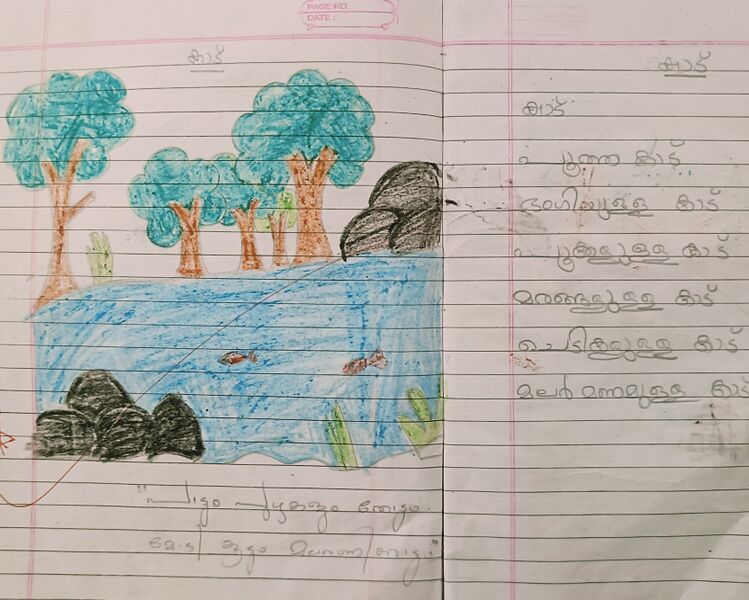 PAGE NO.
DATE :
കാട്
കാട്
കാട്
പൂത്ത കാട്
ഭംഗിയുള്ള കാട്
പൂക്കളുള്ള കാട്
മരങ്ങളുള്ള കാട്
ചെടികളുള്ള കാട്
മലർ മണമുള്ള കാട്